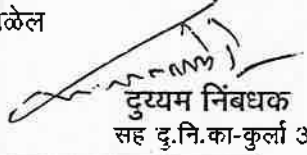 दुय्यम निंबधक
सह दु.नि.का-कुर्ला